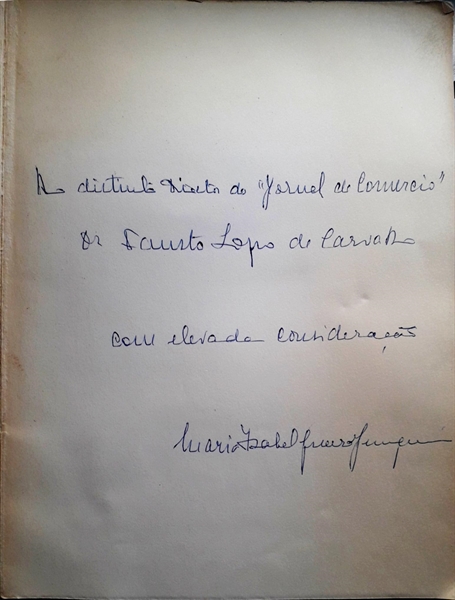 Ao distinto Director do "Jornal do Comercio"
Dr Fausto Lopo de Carvalho
com elevada consideração
Maria Isabel Guerra Junqueiro